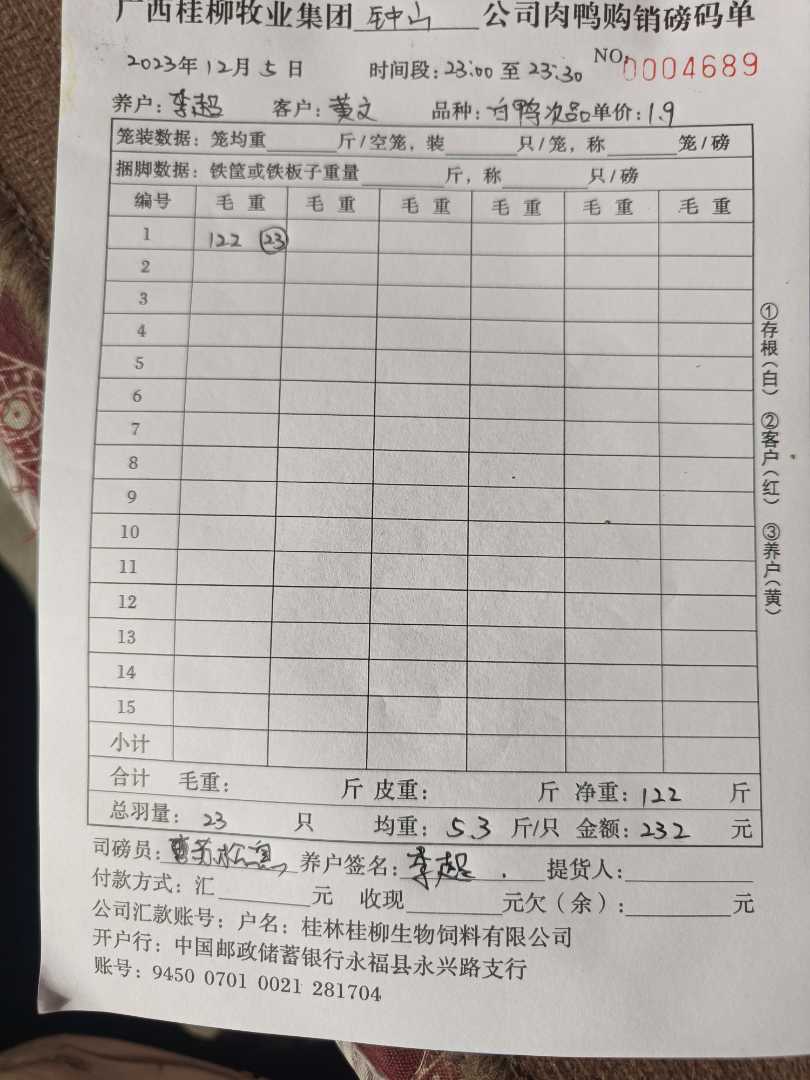 广西桂柳牧业集团 钟山 公司肉鸭购销磅码单
2023年12月5日 时间段:23:00至23:30 NO:0004689
养户:李超 客户:黄文 品种:白鸭次品 单价:1.9
笼装数据:笼均重____斤/空笼,装____只/笼,称____笼/磅
捆脚数据:铁筐或铁板子重量____斤,称____只/磅
编号 毛重 毛重 毛重 毛重 毛重 毛重
1 122 23
2
3
4
5
6
7
8
9
10
11
12
13
14
15
小计
合计 毛重: 斤 皮重: 斤 净重:122 斤
总羽量:23 只 均重:5.3 斤/只 金额:232 元
司磅员: 养户签名:李超 提货人:
付款方式:汇____元 收现____元欠(余):____元
公司汇款账号:户名:桂林桂柳生物饲料有限公司
开户行:中国邮政储蓄银行永福县永兴路支行
账号:9450 0701 0021 281704
①存根(白) ②客户(红) ③养户(黄)